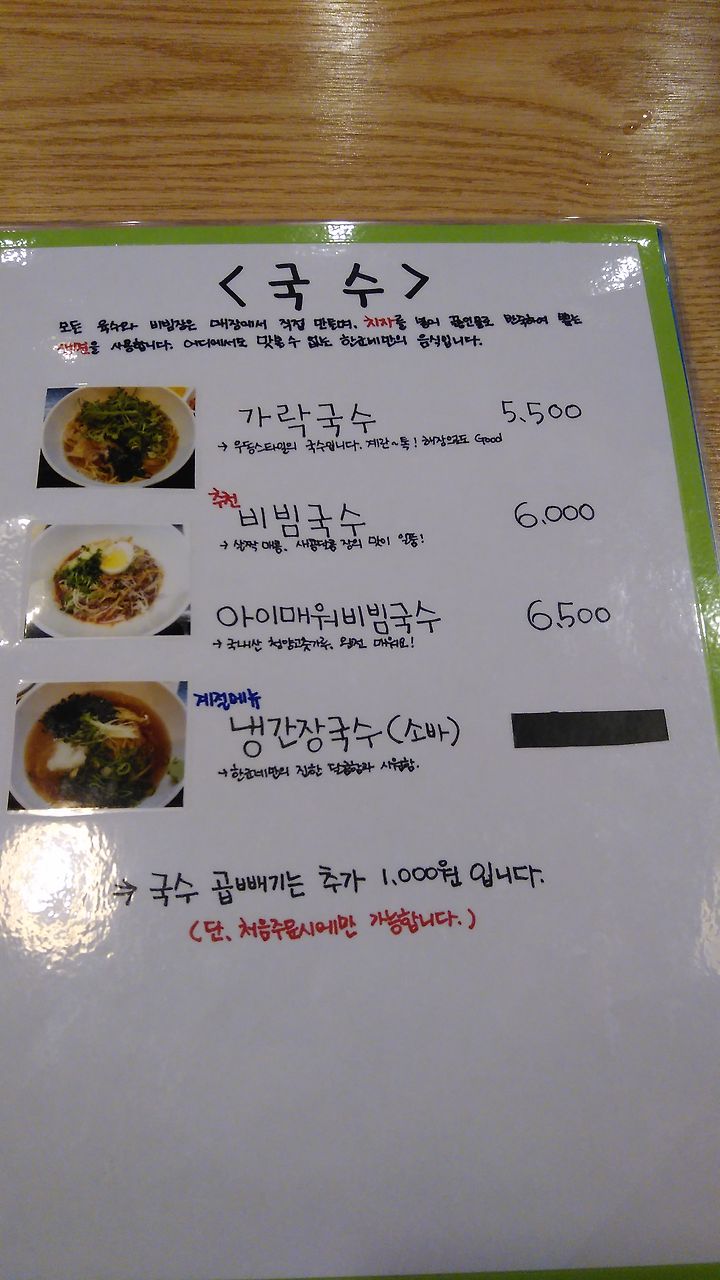 <국수>
모든 육수와 비빔장은 매장에서 직접 만들며, 치자를 넣어 끓인물로 반죽하여 뽑는
생면을 사용합니다. 어디에서도 맛볼 수 없는 한코네만의 음식입니다.
가락국수 5,500
→ 우동스타일의 국수입니다. 계란~톡! 해장으로도 Good
추천
비빔국수 6,000
→ 살짝 매콤, 새콤달콤 장의 맛이 일품!
아이매워비빔국수 6,500
→ 국내산 청양고춧가루, 완전 매워요!
계절메뉴
냉간장국수(소바)
→ 한코네만의 진한 달콤함과 시원함.
→ 국수 곱빼기는 추가 1,000원 입니다.
(단, 처음주문시에만 가능합니다.)